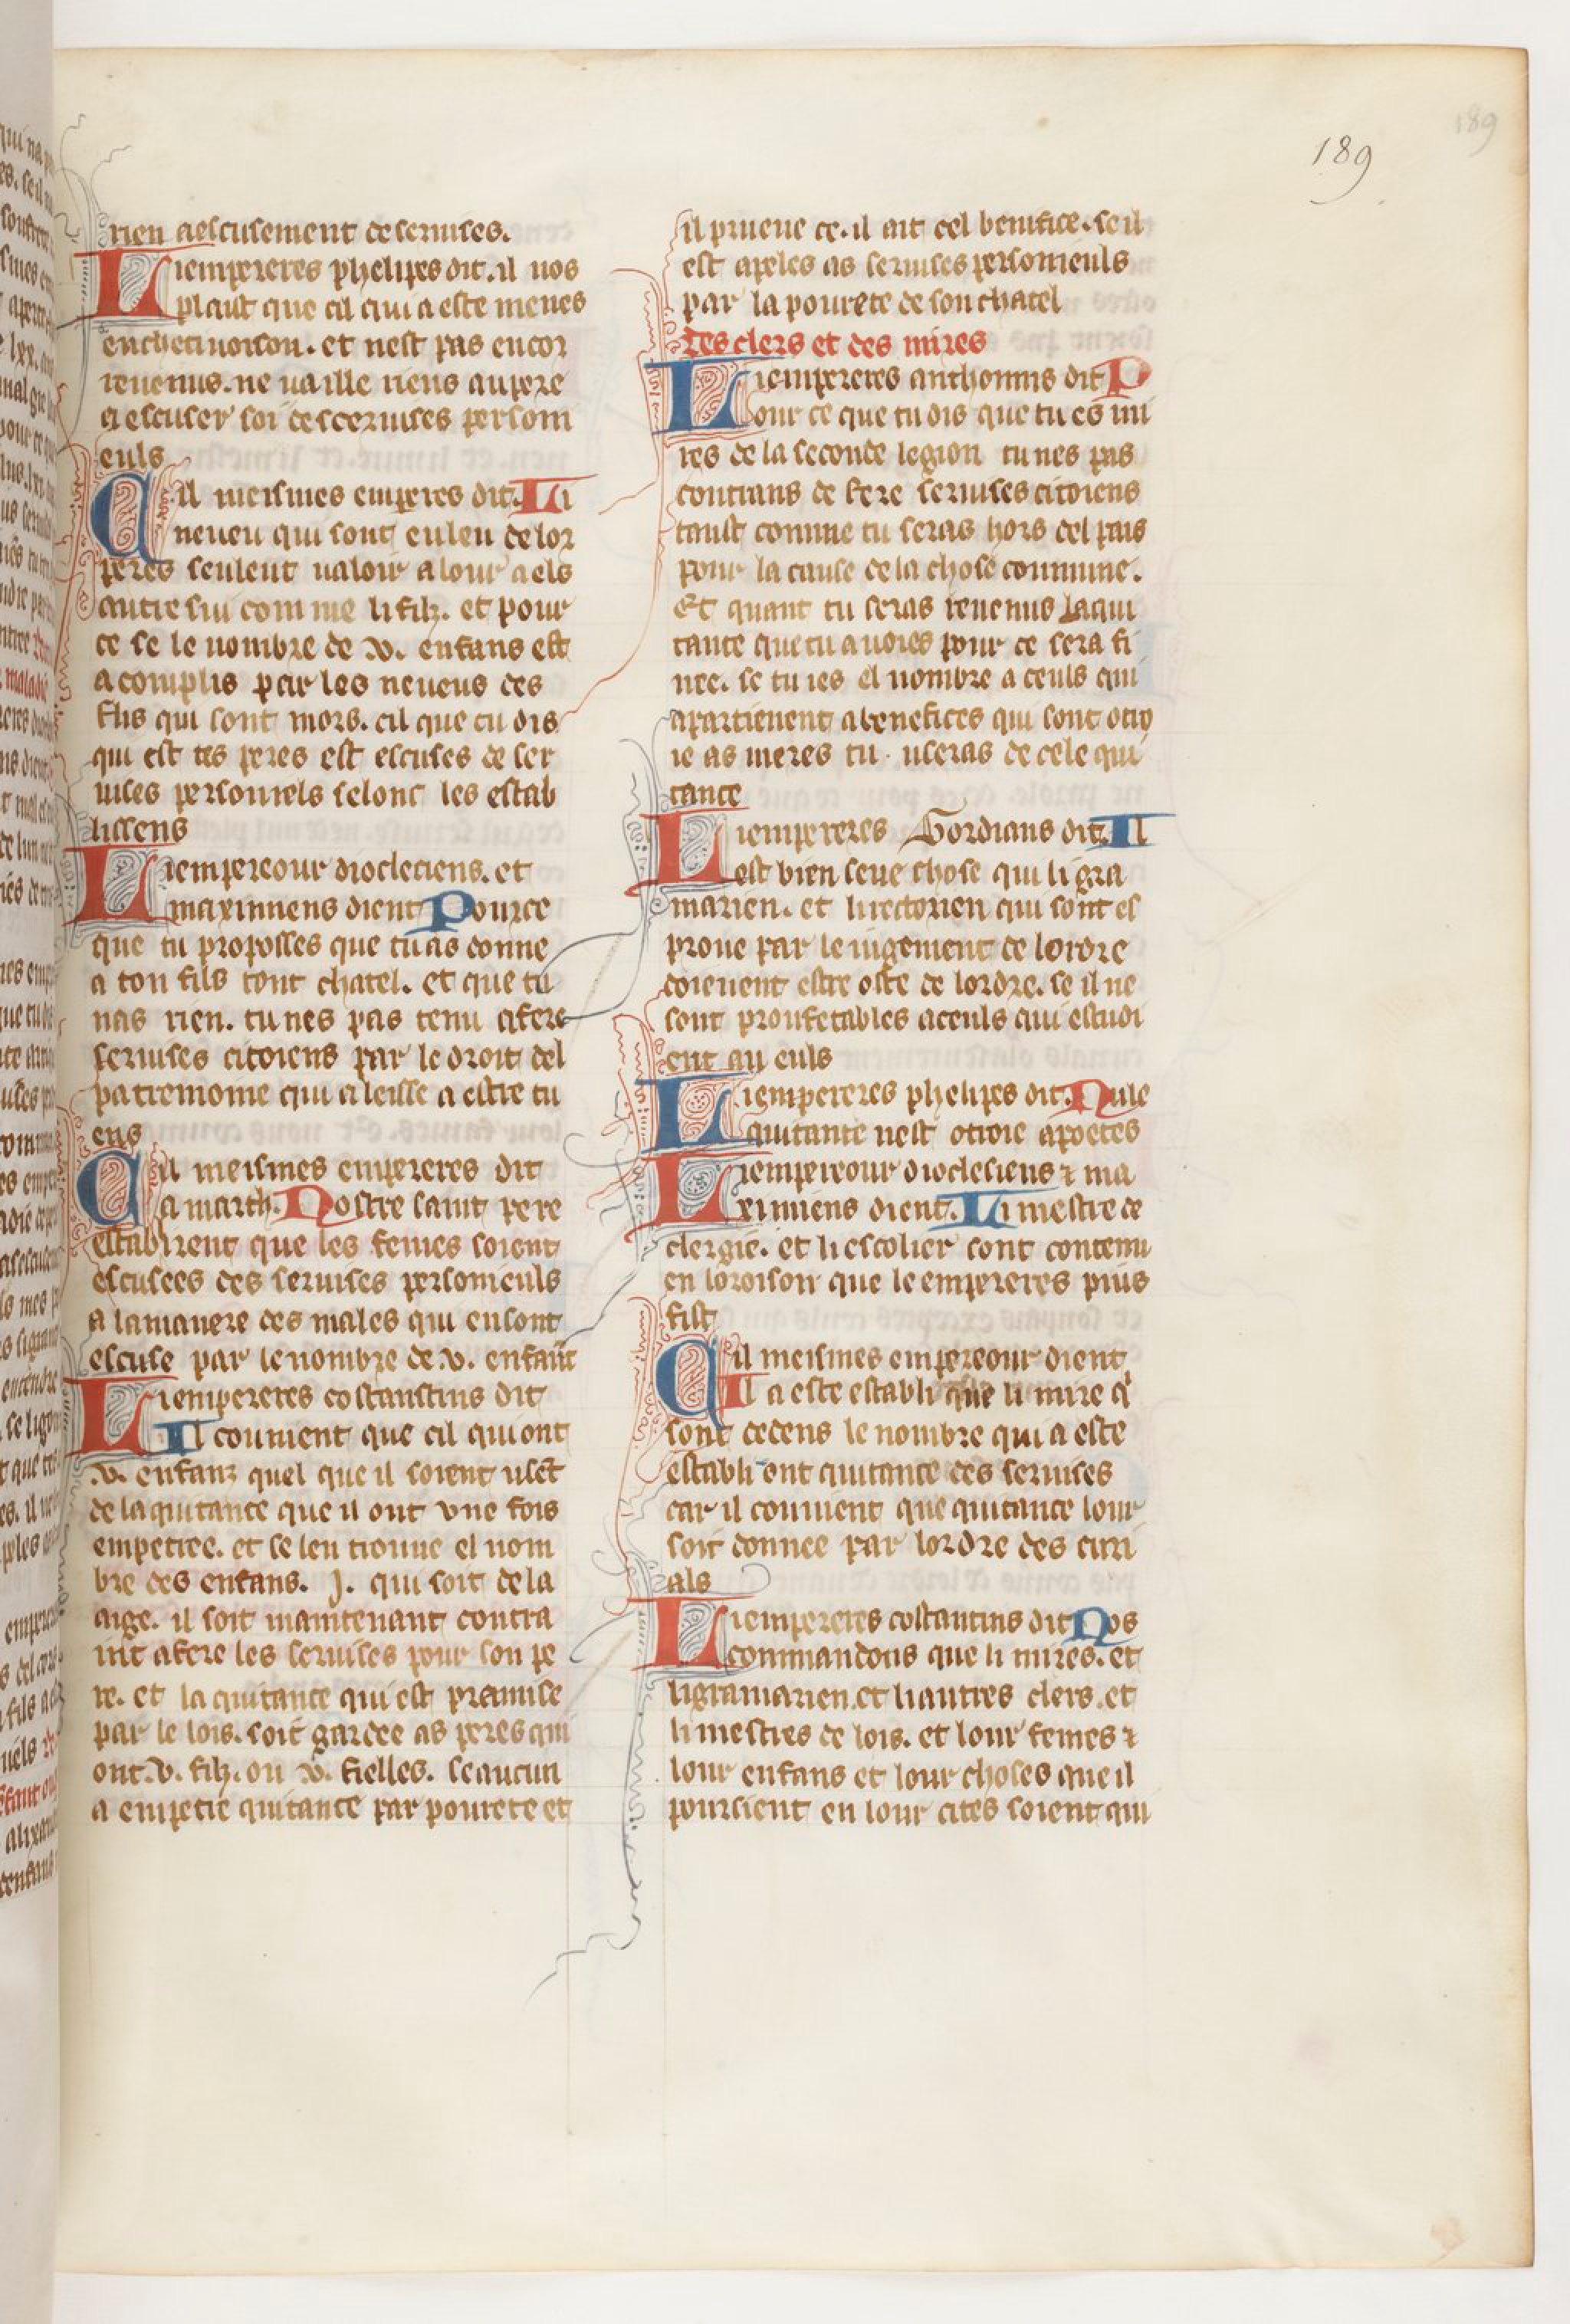 189
189
rien aescusement de seruises.
Liempereres phelipes dit. il nos
plaist que cil qui a este menes
encheitiuoison. et nest pas encor
reuenus. ne uaille riens aupere
a escuser soi descceruises persom
euls
Cil meismes emperes dit. Li
neueu qui sont en leu de lor
peres seulent ualoir a lour aels
autresiu comme li filz. et pour
ce se le nombre de .v. enfans est
acomplis par les neueus des
fius qui sont mors. cil que tu dis
qui est tes peres est escuses de ser
uises personnels selonc les estab
lissens
Liempereour diocleciens. et
maximiens dient Pource
que tu proposses que tu as donne
a ton fils tont chatel. et que tu
nas rien. tu nes pas tenu afere
seruises citoiens par le droit del
patremoine qui a leisse a estre tu
ens
Cil meismes empereres dit
a marth. Nostre saint pere
establirent que les femes soient
escusees des seruises personieuls
a la maniere des males qui en sont
escuse par le nombre de .v. enfant
Liempereres costanstins dit
Il couuient que cil qui ont
.v. enfanz quel que il soient uset
de la quitance que il ont vne fois
empetree. et se len trouue el nom
bre des enfans. J. qui soit de la
aige. il soit maintenant contra
int afere les seruises pour son pe
re. et la quitance qui est premise
par le lois. soit gardee as peres qui
ont .v. filz. ou .v. fielles. se aucun
a empetre quitance par pourete et
il prueue ce. il ait cel benifice. se il
est apeles as seruises personieuls
par la pourete de son chatel
Des clers et des mires
Liempereres anthonius dit P
our ce que tu dis que tu es mi
res de la seconde legion tu nes pas
contrans de fere seruises citoiens
taust comme tu seras hors del pais
pour la cause de la chose commune.
Et quant tu seras reuenus laqui
tance que tu auoies pour ce sera fi
nee. se tu ies el nombre a ceuls qui
apartienent a benefices qui sont otro
ie as meres tu useras de cele qui
tance
Liempereres Gordians dit. Il
est bien seue chose qui li gra
marien. et li rectorien qui sont es
proue par le iugement de lordre
doieuent estre oste de lordre. se il ne
sont proufetables aceuls qui estudi
ent au euls
Liempereres phelipes dit. Nule
quitance nest otroie apoetes
Liempereour dioclesiens ⁊ ma
ximiens dient. Li mestre de
clergie. et li escolier sont contenu
en loroison que le empereres pius
fist
Cil meismes empereour dient
Il a este establi que li mire q'
sont dedens le nombre qui a este
establi ont quitance des seruises
car il couuient que quitance lour
soit donnee par lordre des curi
als
Liempereres costantins dit Nos
commandons que li mires. et
li gramarien. et li autres clers. et
li mestres de lois. et lour femes ⁊
lour enfans et lour choses que il
poursient en lour cites soient qui